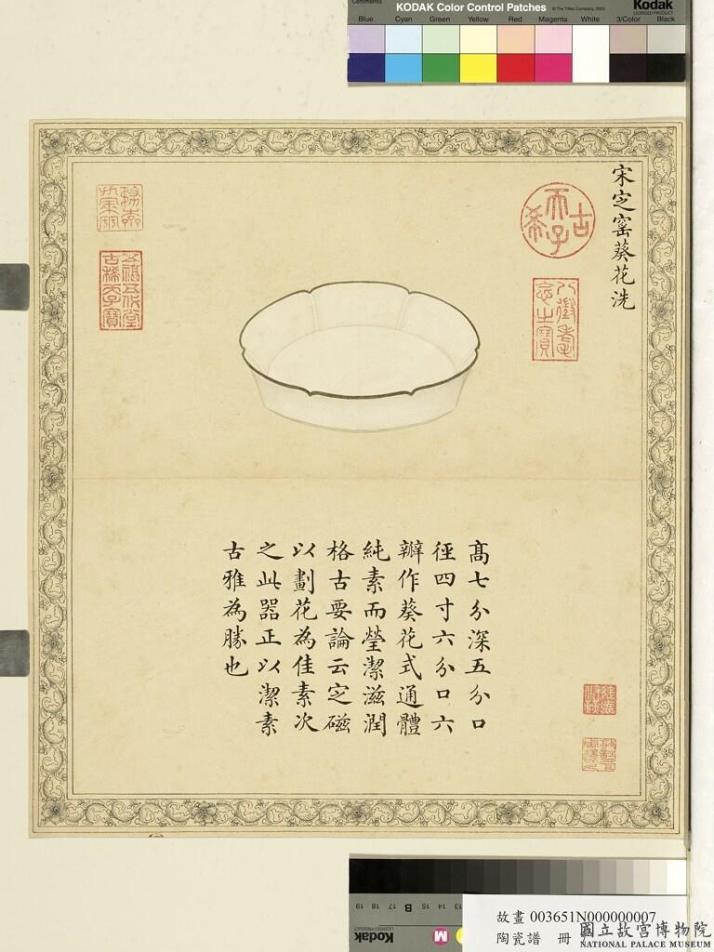 KODAK Color Control Patches
© The Tiffen Company, 2000
Kodak
LICENSED PRODUCT
Blue Cyan Green Yellow Red Magenta White 3/Color Black
宋定窑葵花洗
古希天子
八徵耄念之寶
五福五代堂古稀天子寶
高七分深五分口
徑四寸六分口六
瓣作葵花式通體
純素而瑩潔滋潤
格古要論云定磁
以劃花為佳素次
之此器正以潔素
古雅為勝也
19 18 17 16 15 14 13 B
Kodak
M
故畫 003651N000000007
陶瓷譜 冊
國立故宮博物院
NATIONAL PALACE MUSEUM